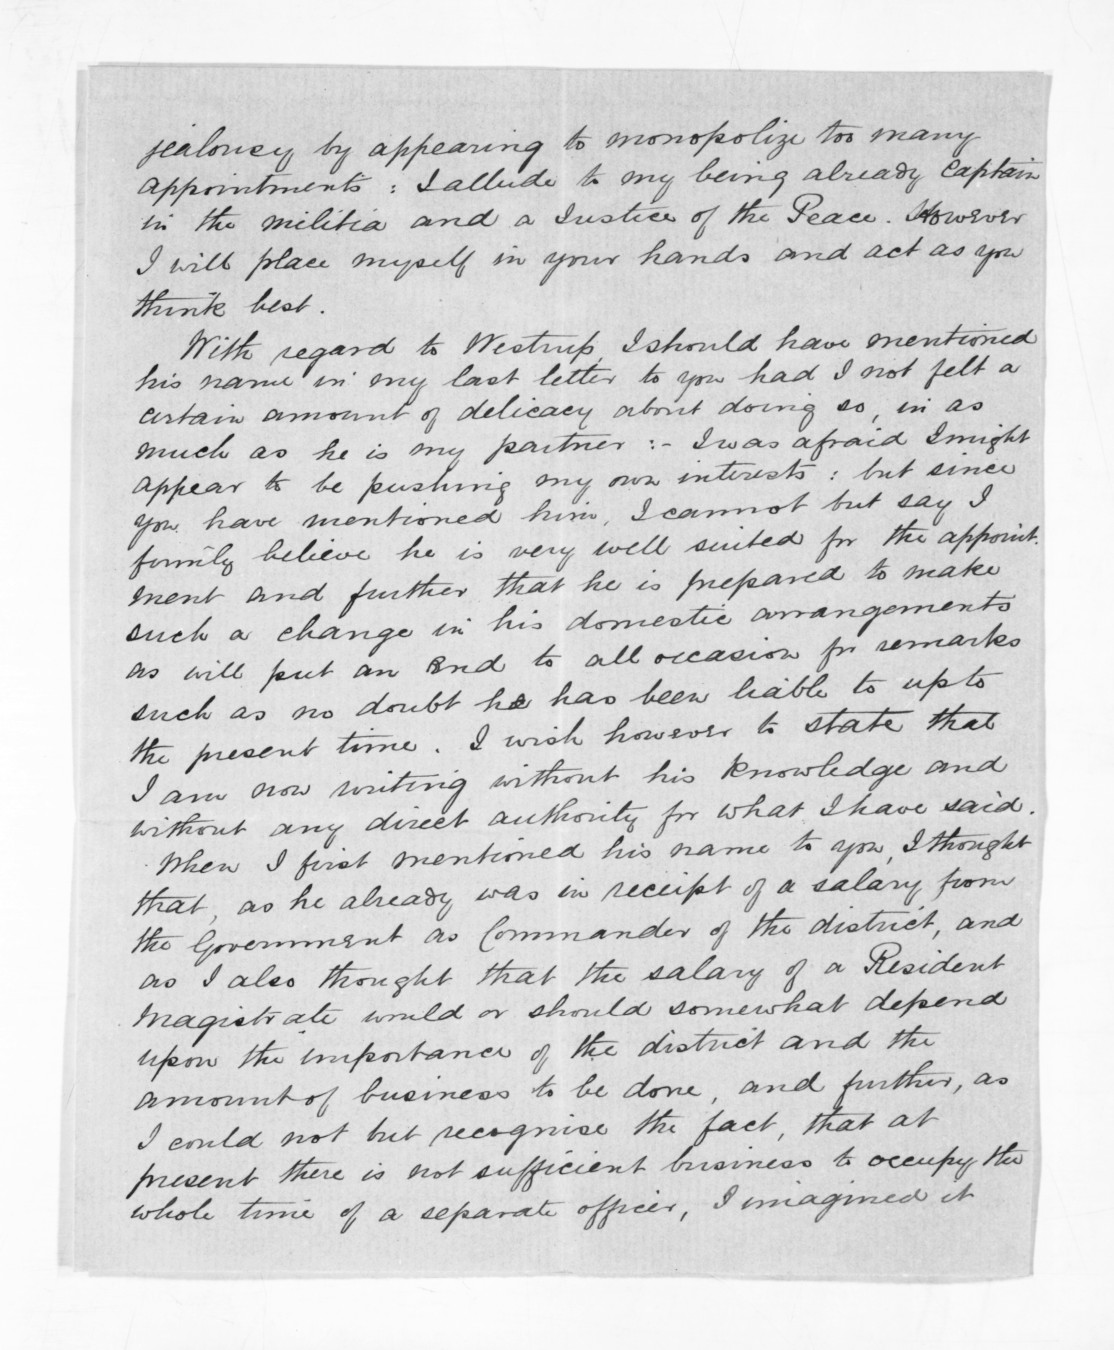 jealousy by appearing to monopolize too many
appointments : I allude to my being already Captain
in the militia and a Justice of the Peace. However
I will place myself in your hands and act as you
think best.
With regard to Westrup, I should have mentioned
his name in my last letter to you had I not felt a
certain amount of delicacy about doing so, in as
much as he is my partner :- I was afraid I might
appear to be pushing my own interests : but since
you have mentioned him, I cannot but say I
firmly believe he is very well suited for the appoint-
ment and further that he is prepared to make
such a change in his domestic arrangements
as will put an end to all occasion for remarks
such as no doubt he has been liable to up to
the present time. I wish however to state that
I am now writing without his knowledge and
without any direct authority for what I have said.
When I first mentioned his name to you, I thought
that, as he already was in receipt of a salary from
the Government as Commander of the district, and
as I also thought that the salary of a Resident
Magistrate would or should somewhat depend
upon the importance of the district and the
amount of business to be done, and further, as
I could not but recognise the fact, that at
present there is not sufficient business to occupy the
whole time of a separate officer, I imagined it